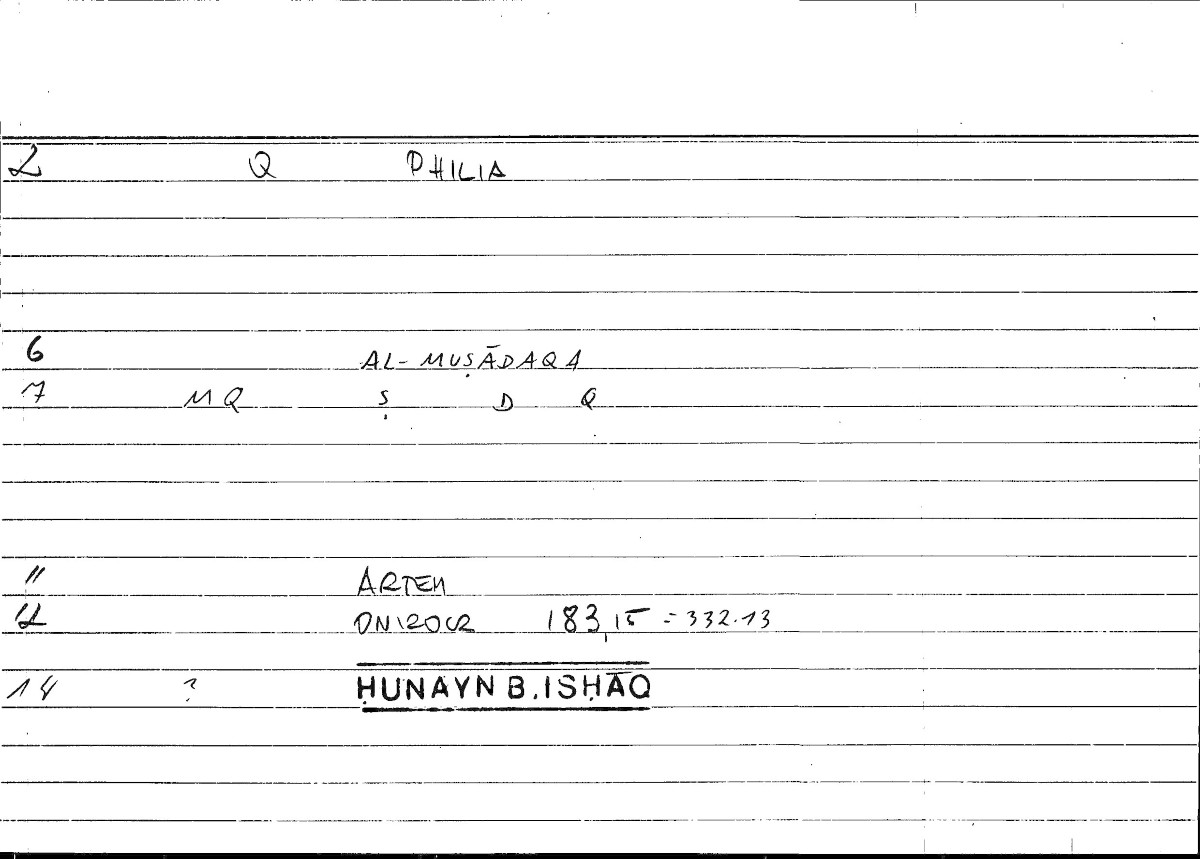 2 Q PHILIA
6 AL-MUṢĀDAQA
7 MQ Ṣ D Q
11 ARTEM
12 ONIROCR 183,15 = 332.13
14 ? ḤUNAYN B. ISḤĀQ